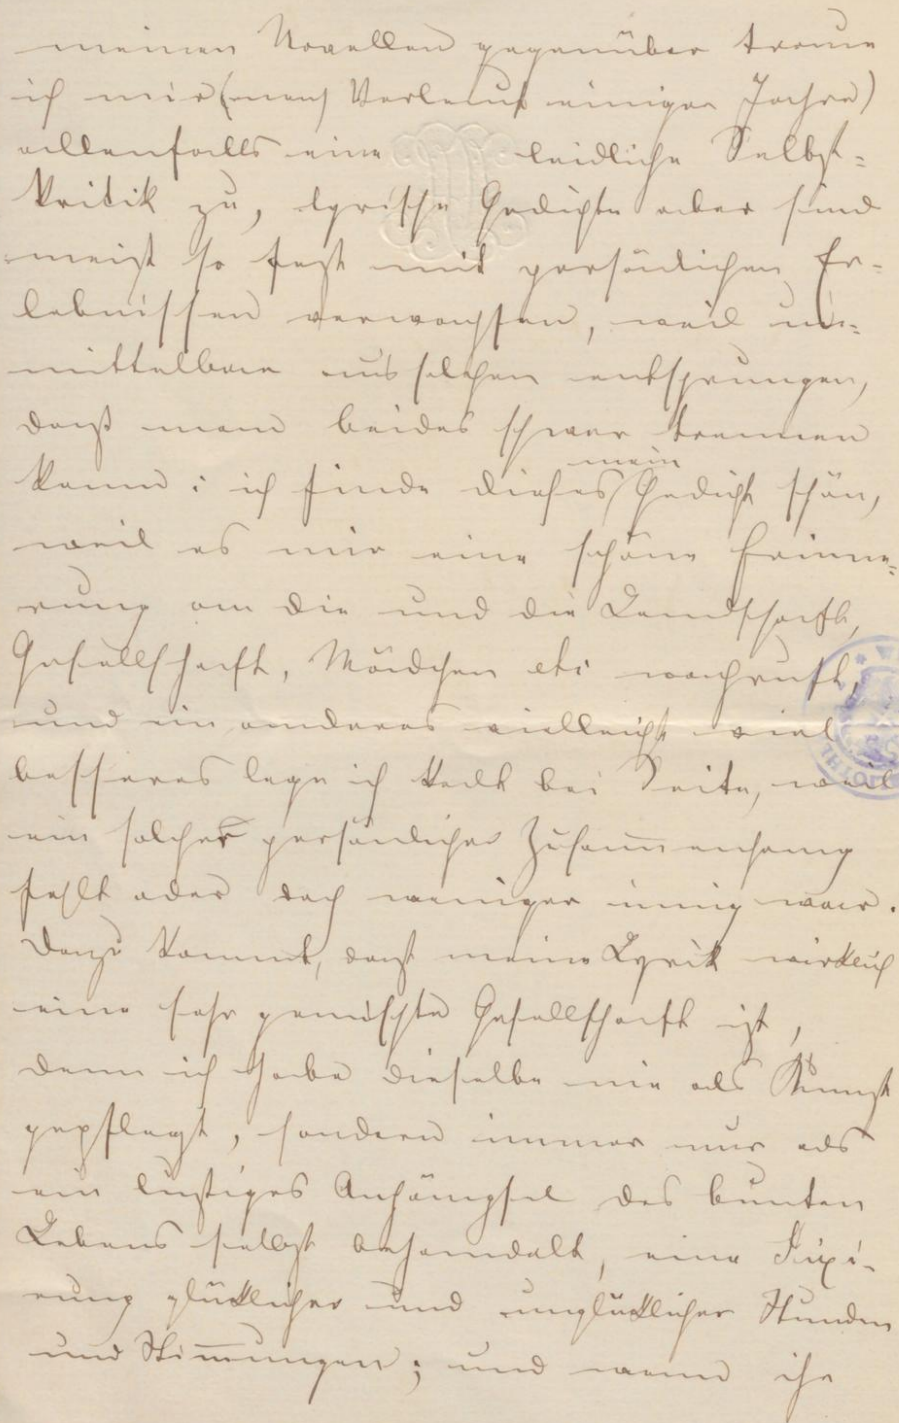 meinen Novellen gegenüber traue
ich mir (nach Verlauf einiger Jahre)
allenfalls eine leidliche Selbst-
kritik zu, lyrische Gedichte aber sind
meist so fest mit persönlichen Er-
lebnissen verwachsen, weil un-
mittelbar aus solchen entsprungen,
daß man beides schwer trennen
kann: ich finde dieses mein Gedicht schön,
weil es mir eine schöne Erinne-
rung an die und die Landschaft,
Gesellschaft, Mädchen etc wachruft,
und ein anderes vielleicht viel
besseres lege ich keck bei Seite, weil
ein solcher persönlicher Zusammenhang
fehlt oder doch weniger innig war.
Dazu kommt, daß meine Lyrik wirklich
eine sehr gemischte Gesellschaft ist,
denn ich habe dieselbe nie als Kunst
gepflegt, sondern immer nur als
ein lustiges Anhängsel des bunten
Lebens selbst behandelt, eine Fixi-
rung glücklicher und unglücklicher Stunden
und Stimmungen; und wenn ihr